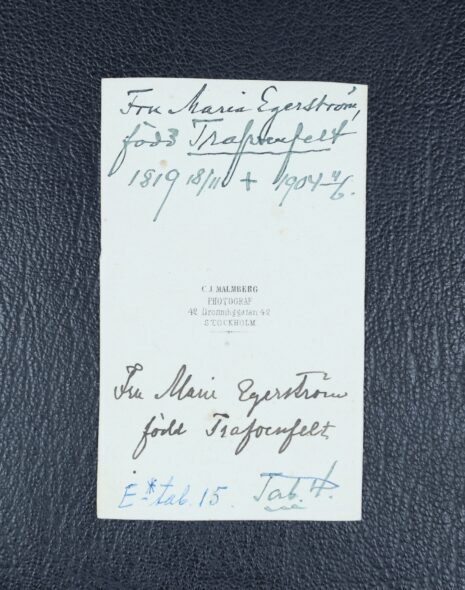 Fru Maria Egerström,
född Trafvenfelt
1819 18/11 + 1904 11/6.
C. J. MALMBERG
PHOTOGRAF
42 Drottninggatan 42
STOCKHOLM
Fru Marie Egerström
född Trafvenfelt
tab. 15. Tab. 4.